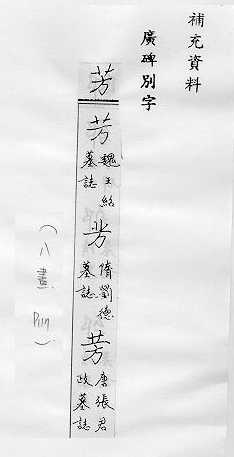 補充資料
廣碑別字
芳
芳 魏王紹墓誌
芳 隋劉德墓誌
芳 唐張君政墓誌
(八畫 Pin)